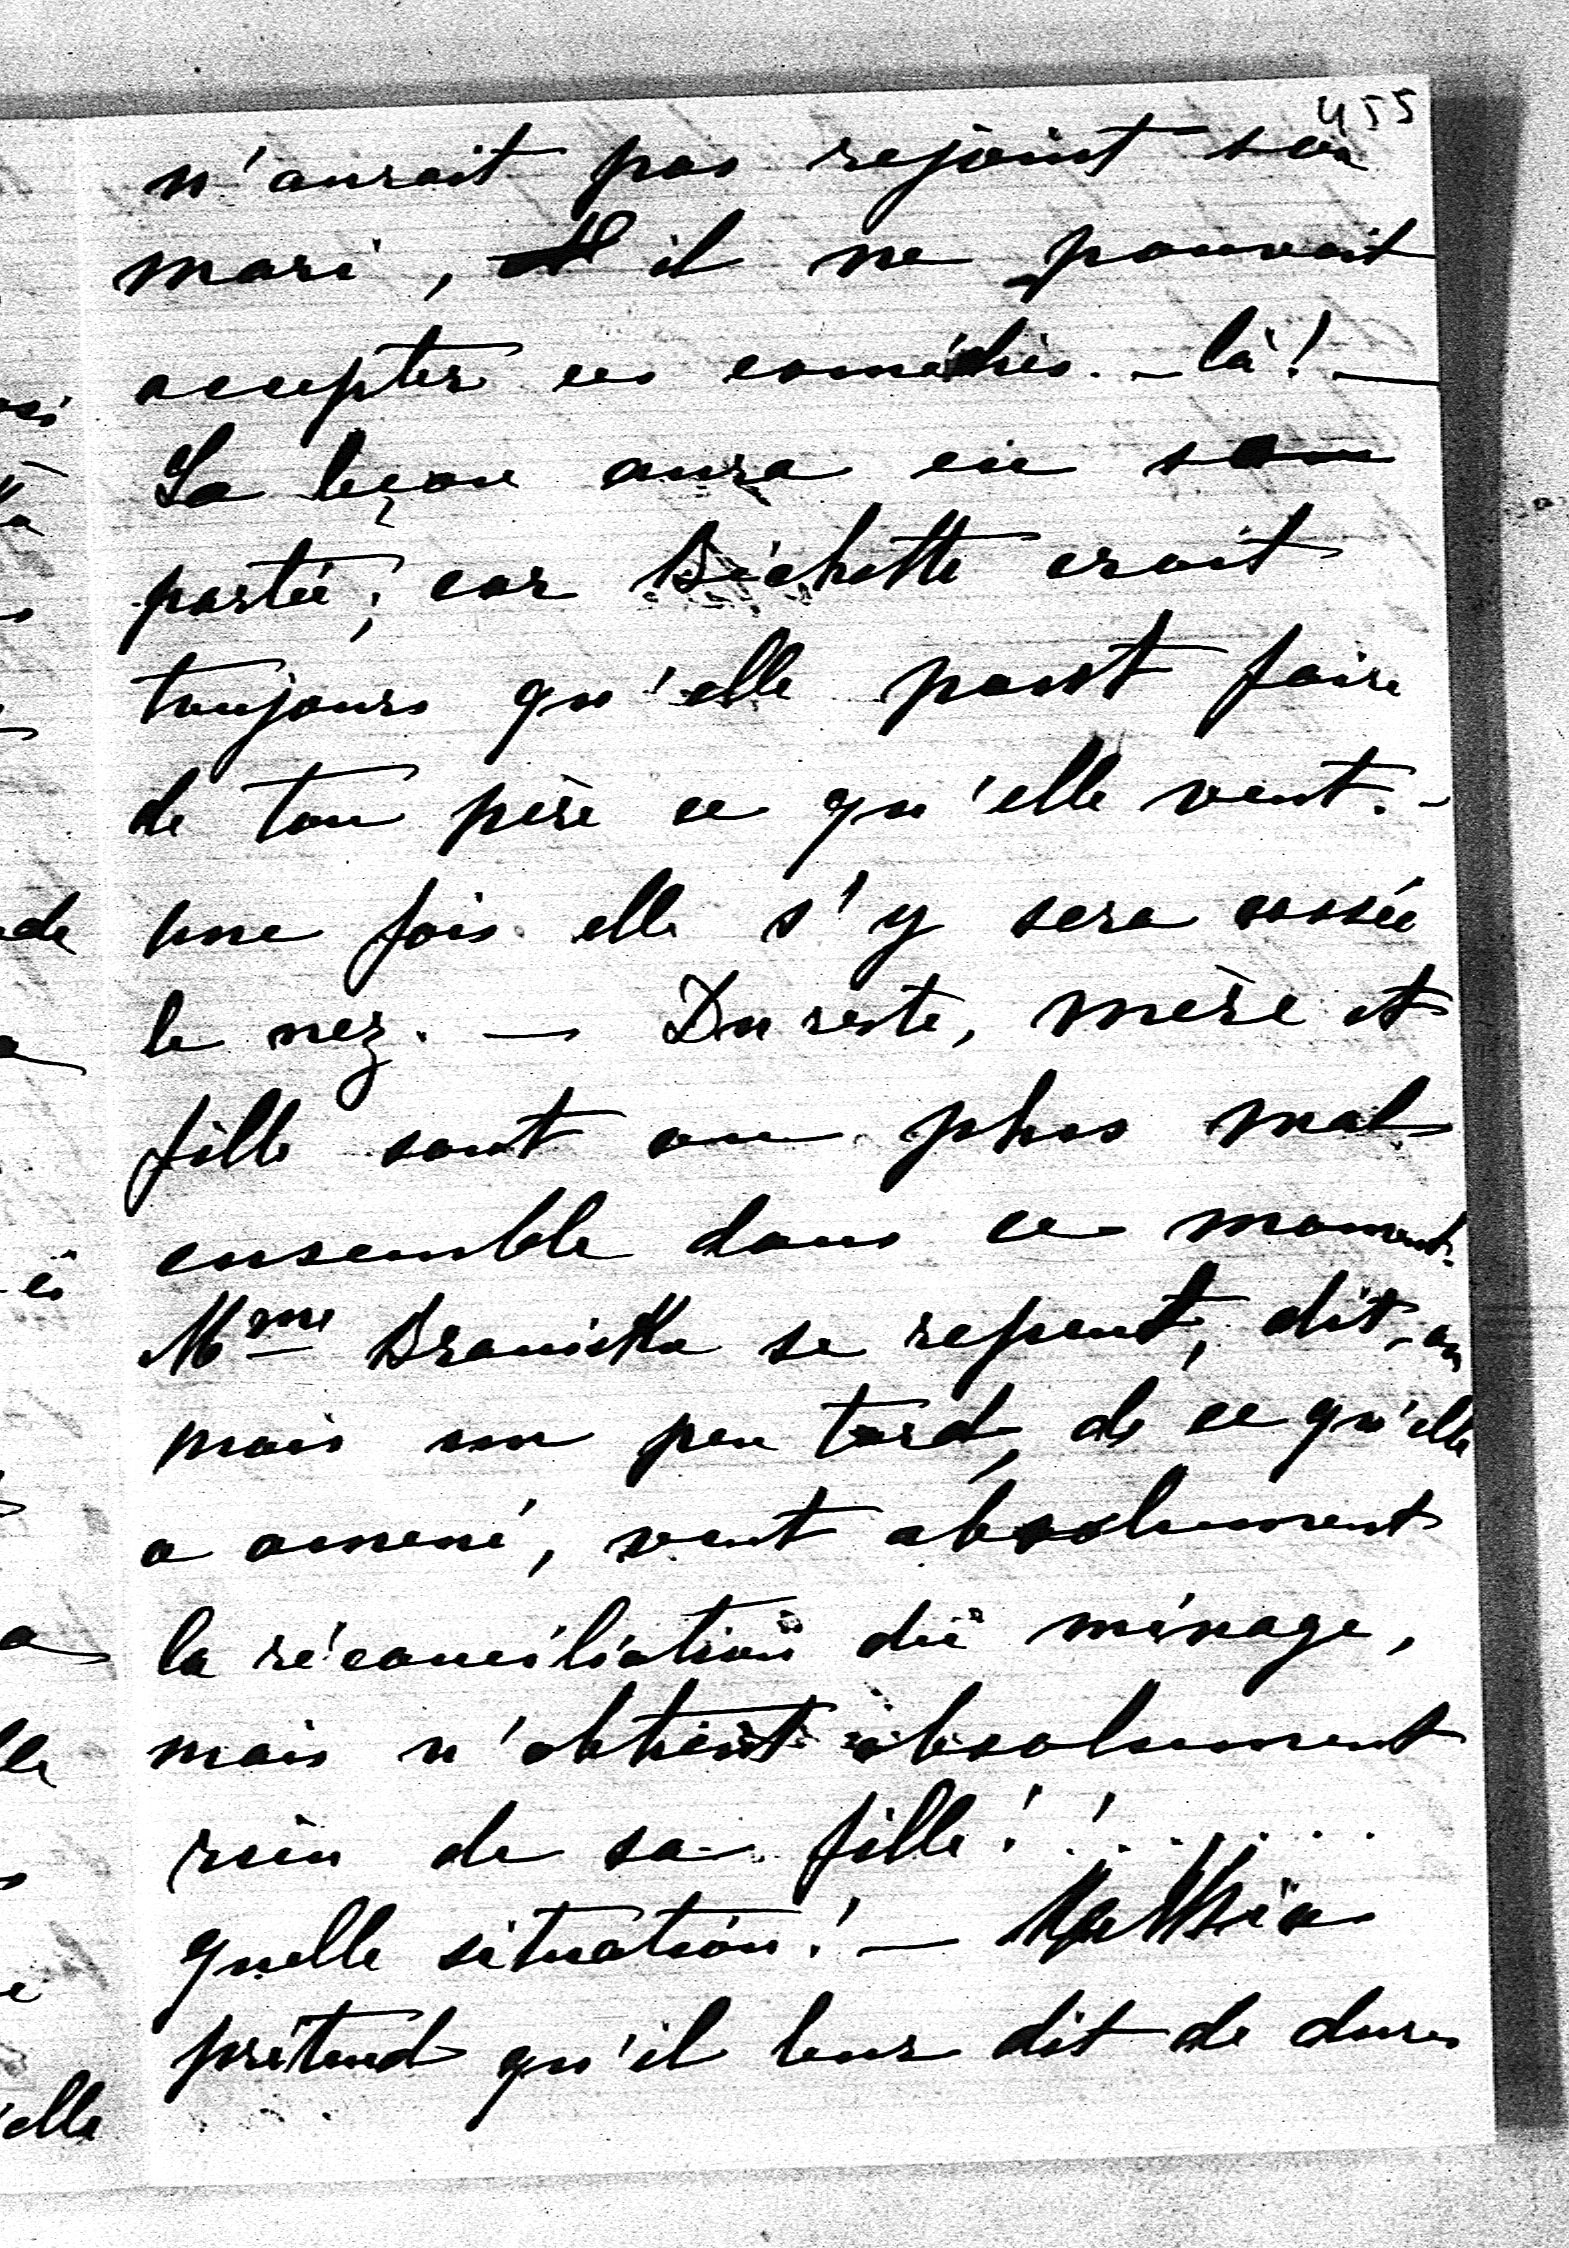 455
n'aurait pas rejoint son
mari, il ne pouvait
accepter ces comédies-là! —
La leçon aura eu sa
portée; car Bichette croit
toujours qu'elle peut faire
de ton père ce qu'elle veut. -
une fois elle s'y sera cassée
le nez. — Du reste, mère et
fille sont au plus mal
ensemble dans ce moment.
Mme Braniska se repent, dit-on
mais un peu tard, de ce qu'elle
a amené, veut absolument
la réconciliation du ménage,
mais n'obtient absolument
rien de sa fille!!.....
quelle situation! —
prétend qu'il leur dit de dures